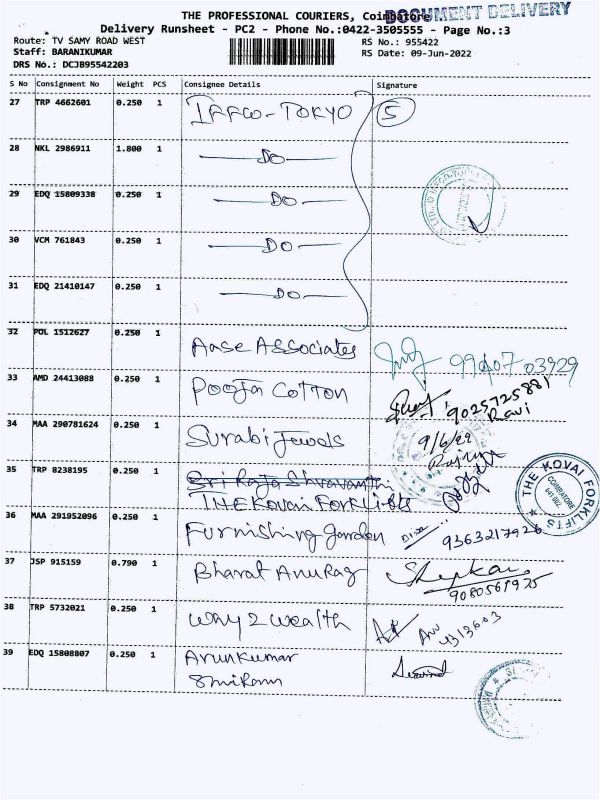 THE PROFESSIONAL COURIERS, Coimbatore
DOCUMENT DELIVERY
Delivery Runsheet - PC2 - Phone No.:0422-3505555 - Page No.:3
Route: TV SAMY ROAD WEST
RS No.: 955422
Staff: BARANIKUMAR
RS Date: 09-Jun-2022
DRS No.: DCJB95542203
S No Consignment No Weight PCS Consignee Details Signature
27 TRP 4662601 0.250 1 IFFCO-TOKYO 5
28 NKL 2986911 1.800 1 DO
29 EDQ 15809338 0.250 1 DO
30 VCM 761843 0.250 1 DO
31 EDQ 21410147 0.250 1 DO
32 POL 1512627 0.250 1 Aase Associates
33 AMD 24413088 0.250 1 Pooja Cotton 9025725881
Ravi
34 MAA 290781624 0.250 1 Surabi Jewels 9/6/22
35 TRP 8238195 0.250 1 Sri Raja Shravanth
THE Kovai Forklifts
THE KOVAI FORKLIFTS
COIMBATORE
36 MAA 291952096 0.250 1 Furnishing Garden 9363217926
37 JSP 915159 0.790 1 Bharat Anurag
9080561975
38 TRP 5732021 0.250 1 Way 2 Wealth
39 EDQ 15808807 0.250 1 Arunkumar
Shriram